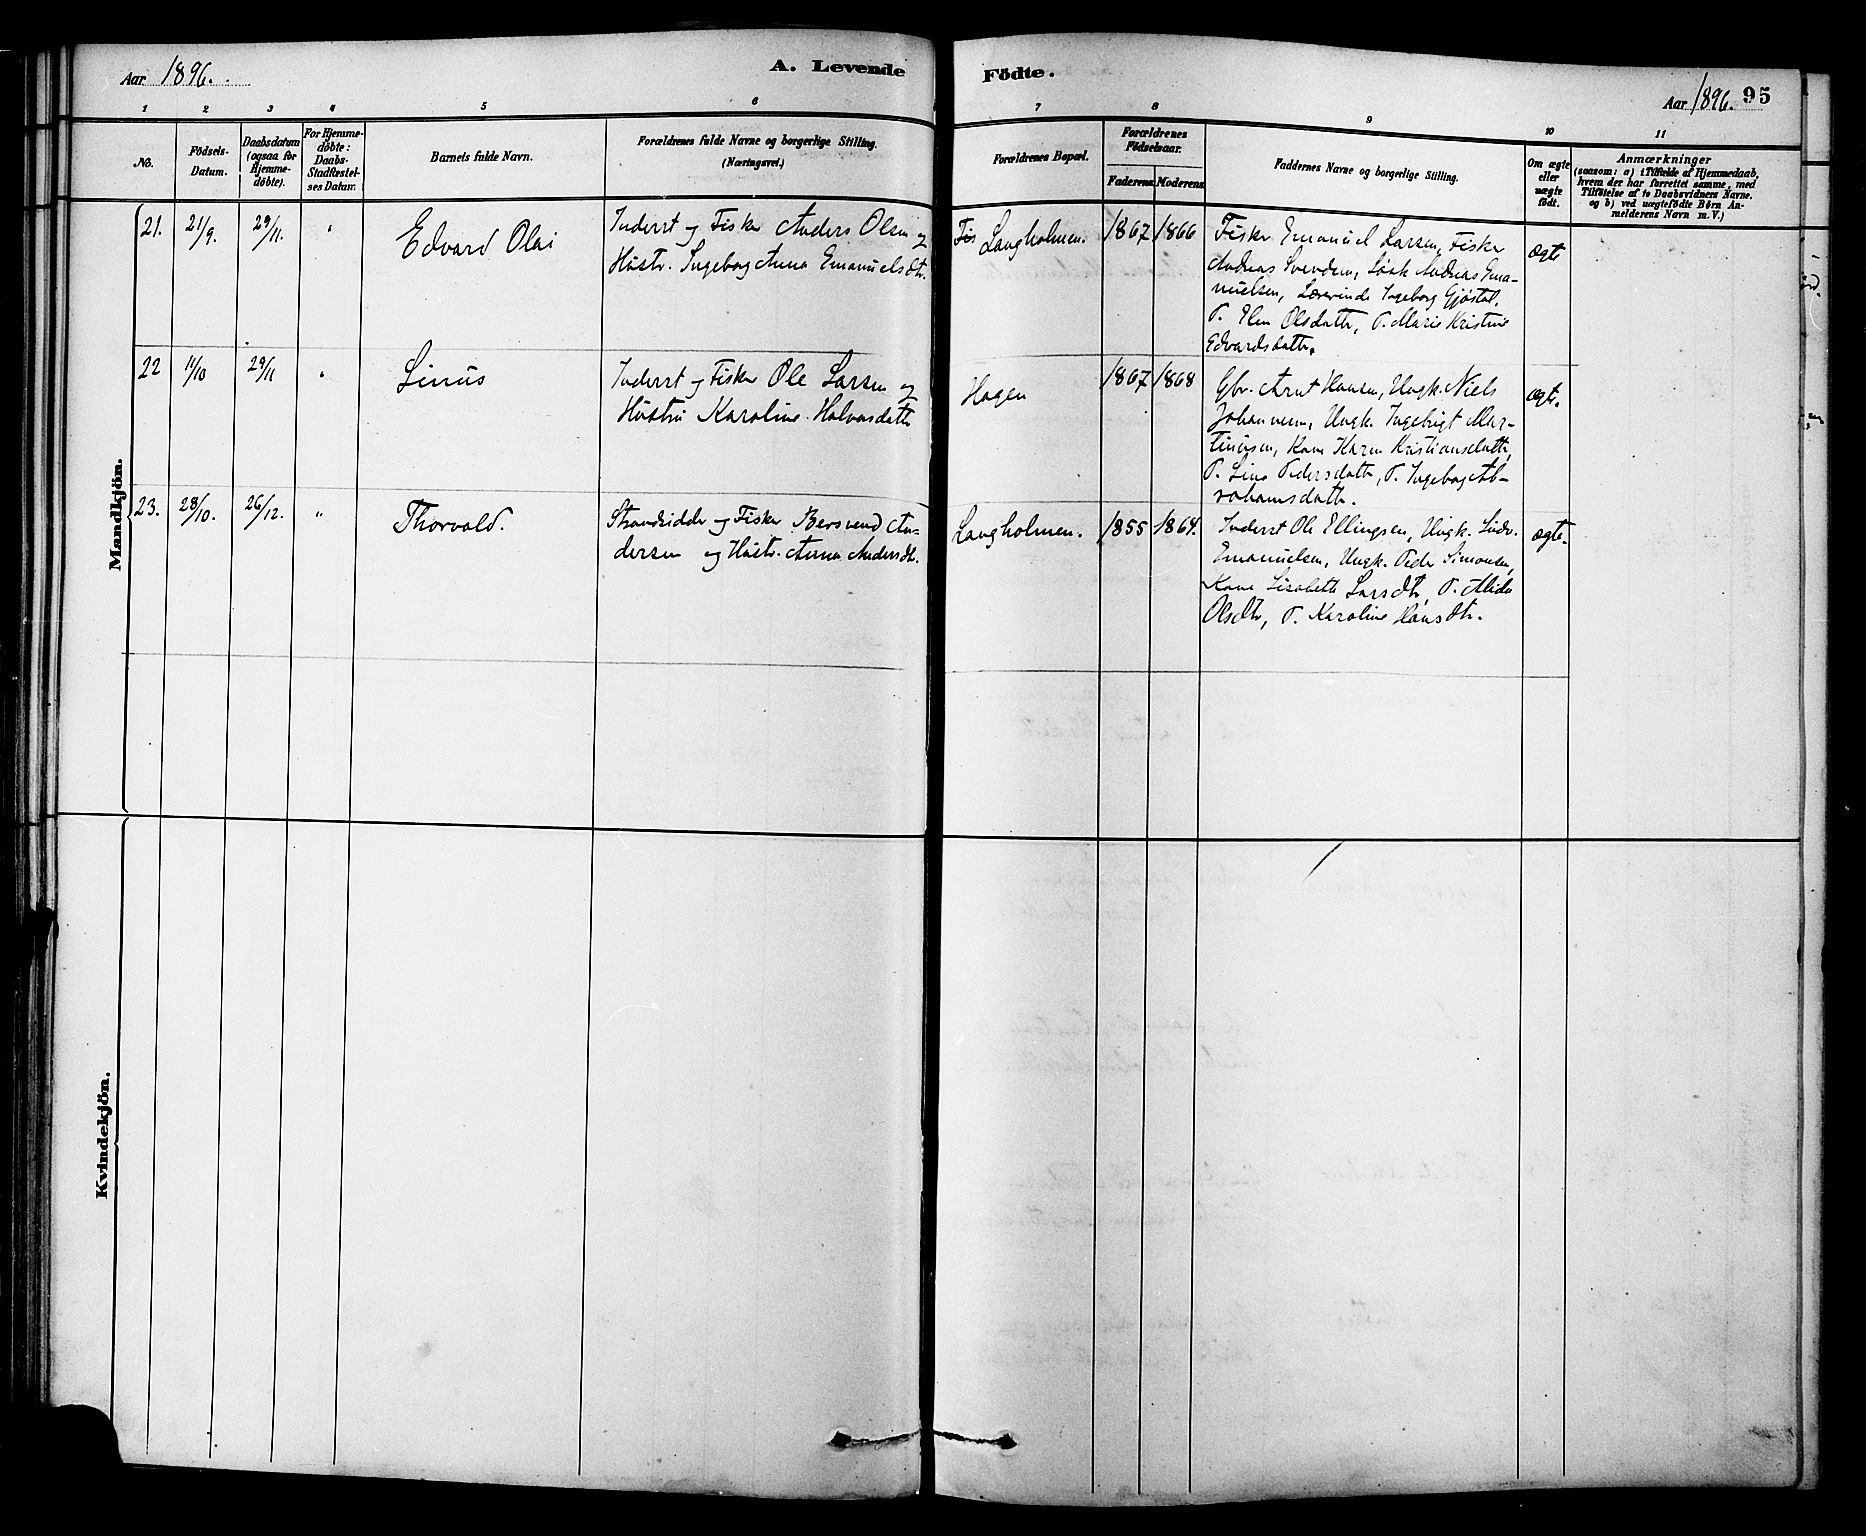 Aar 1896.
A. Levende
Födte.
Aar 1896. 95
1 2 3 4 5 6 7 8 9 10 11
No.
Födsels-
Datum.
Daabsdatum
(ogsaa for
Hjemme-
döbte).
For Hjemme-
döbte:
Daabs-
Stadfæstel-
ses Datum.
Barnets fulde Navn.
Forældrenes fulde Navne og borgerlige Stilling.
(Næringsvei.)
Forældrenes Bopæl.
Forældrenes
Födselsaar.
Faderens. Moderens.
Faddernes Navne og borgerlige Stilling.
Om ægte
eller
uægte
födt.
Anmærkninger
(saasom: a) i Tilfælde af Hjemmedaab,
hvem der har forrettet samme, med
Tilföielse af to Daabsvidners Navne.
og b) ved uægtefödte Börn An-
melderens Navn m. V.)
Mandkjön.
21.
21/9.
29/11.
"
Edvard Olai
Inderst og Fisker Anders Olsen og
Hustr. Ingeborg Anna Emanuelsdtr.
Langholmen.
1867
1866
Fisker Emanuel Larsen, Fisker
Andreas Svendsen, Andreas Ema-
nuelsen, Lærerinde Ingeborg Gjøstøl.
P. Elen Olsdattr, P. Marie Kristine
Edvardsdattr.
ægte
22
11/10
29/11
"
Linus
Inderst og Fisker Ole Larsen og
Hustru Karoline Halvorsdattr
Hagen
1867
1868
Gbr. Arnt Hansen, Ungk. Niels
Johannesen, Ungk. Ingebrigt Mar-
tinusen, Kone Karen Kristiansdattr,
P. Lina Pedersdattr, P. Ingeborg Ab-
rahamsdattr.
ægte.
23.
28/10.
26/12.
"
Thorvald.
Strandsidder og Fisker Bersvend An-
dersen og Hustr. Anna Andersdtr.
Langholmen.
1855
1864.
Inderst Ole Ellingsen, Ungk. Ludv.
Emanuelsen, Ungk. Peder Simonsen,
Kone Lisabeth Larsdtr, P. Alida
Olsdtr, P. Karoline Hansdtr.
ægte.
Kvindekjön.